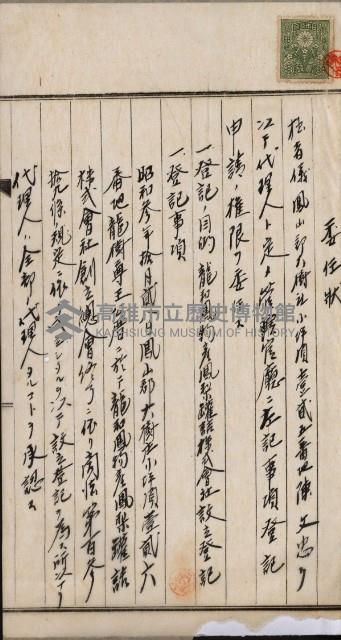 委任狀
拙者儀鳳山郡大樹庄小坪頂壹貳五番地陳文忠ヲ
以テ代理人ト定メ管轄官廳ニ左記事項登記
申請ノ權限ヲ委任ス
一、登記ノ目的 龍和鳳物產鳳梨罐詰株式會社設立登記
一、登記事項
昭和參年拾月貳日鳳山郡大樹庄小坪頂壹貳六
番地龍樹尊王廟ニ於テ龍和鳳物產鳳梨罐詰
株式會社創立總會終了ニ依リ商法第百參
拾九條ノ規定ニ依
設立登記ヲ為ス所以ナリ
代理人ハ全部ノ代理人タルコトヲ承認ス
高雄市立歷史博物館
KAOHSIUNG MUSEUM OF HISTORY